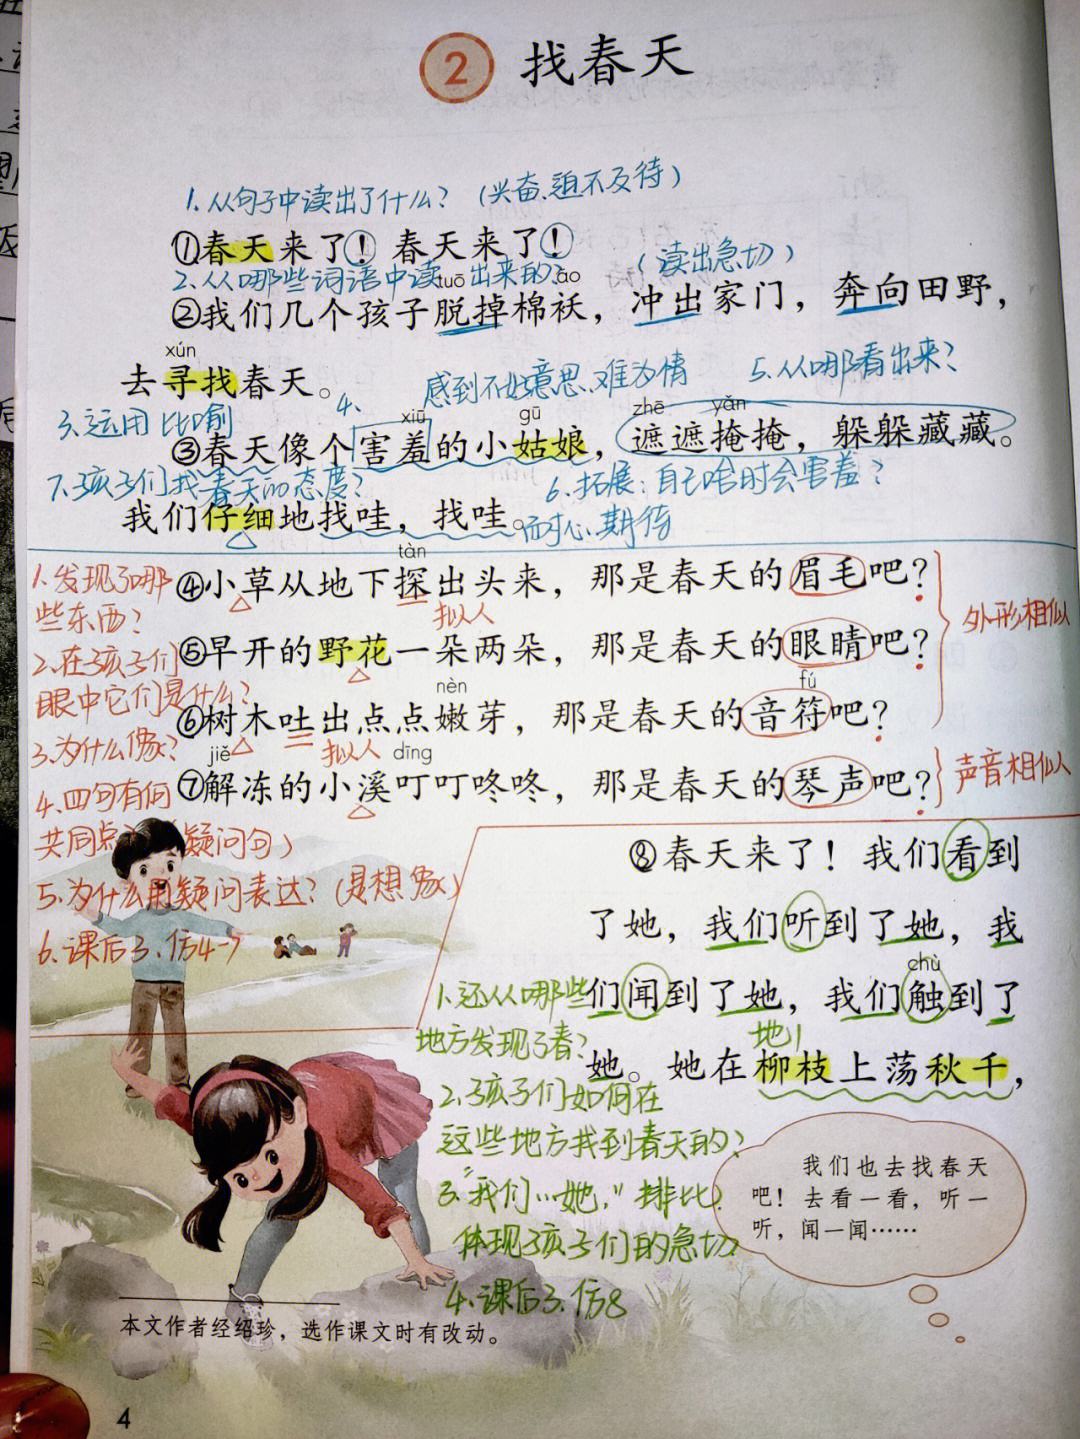 2 找春天
1.从句子中读出了什么？（兴奋、迫不及待）
①春天来了！春天来了！
2.从哪些词语中读出来的？（读出急切）
tuō ǎo
②我们几个孩子脱掉棉袄，冲出家门，奔向田野，
xún
去寻找春天。
4.感到不好意思、难为情
5.从哪看出来？
3.运用比喻
xiū gū zhē yǎn
③春天像个害羞的小姑娘，遮遮掩掩，躲躲藏藏。
7.孩子们找春天的态度？
6.拓展：自己啥时会害羞？
我们仔细地找哇，找哇。
耐心、期待
tàn
1.发现了哪
④小草从地下探出头来，那是春天的眉毛吧？
些东西？
拟人
外形相似
2.在孩子们
⑤早开的野花一朵两朵，那是春天的眼睛吧？
眼中它们是什么？
nèn fú
⑥树木吐出点点嫩芽，那是春天的音符吧？
3.为什么像？
jiě 拟人 dīng
⑦解冻的小溪叮叮咚咚，那是春天的琴声吧？
声音相似
4.四句有何
共同点？（疑问句）
5.为什么用疑问表达？（是想象）
6.课后3.仿4-7
⑧春天来了！我们看到
了她，我们听到了她，我
chù
们闻到了她，我们触到了
她。她在柳枝上荡秋千，
1.还从哪些
地方发现了春？
2.孩子们如何在
这些地方找到春天的？
3.“我们…她，”排比
体现孩子们的急切
4.课后3.仿8
我们也去找春天
吧！去看一看，听一
听，闻一闻……
本文作者经绍珍，选作课文时有改动。
4